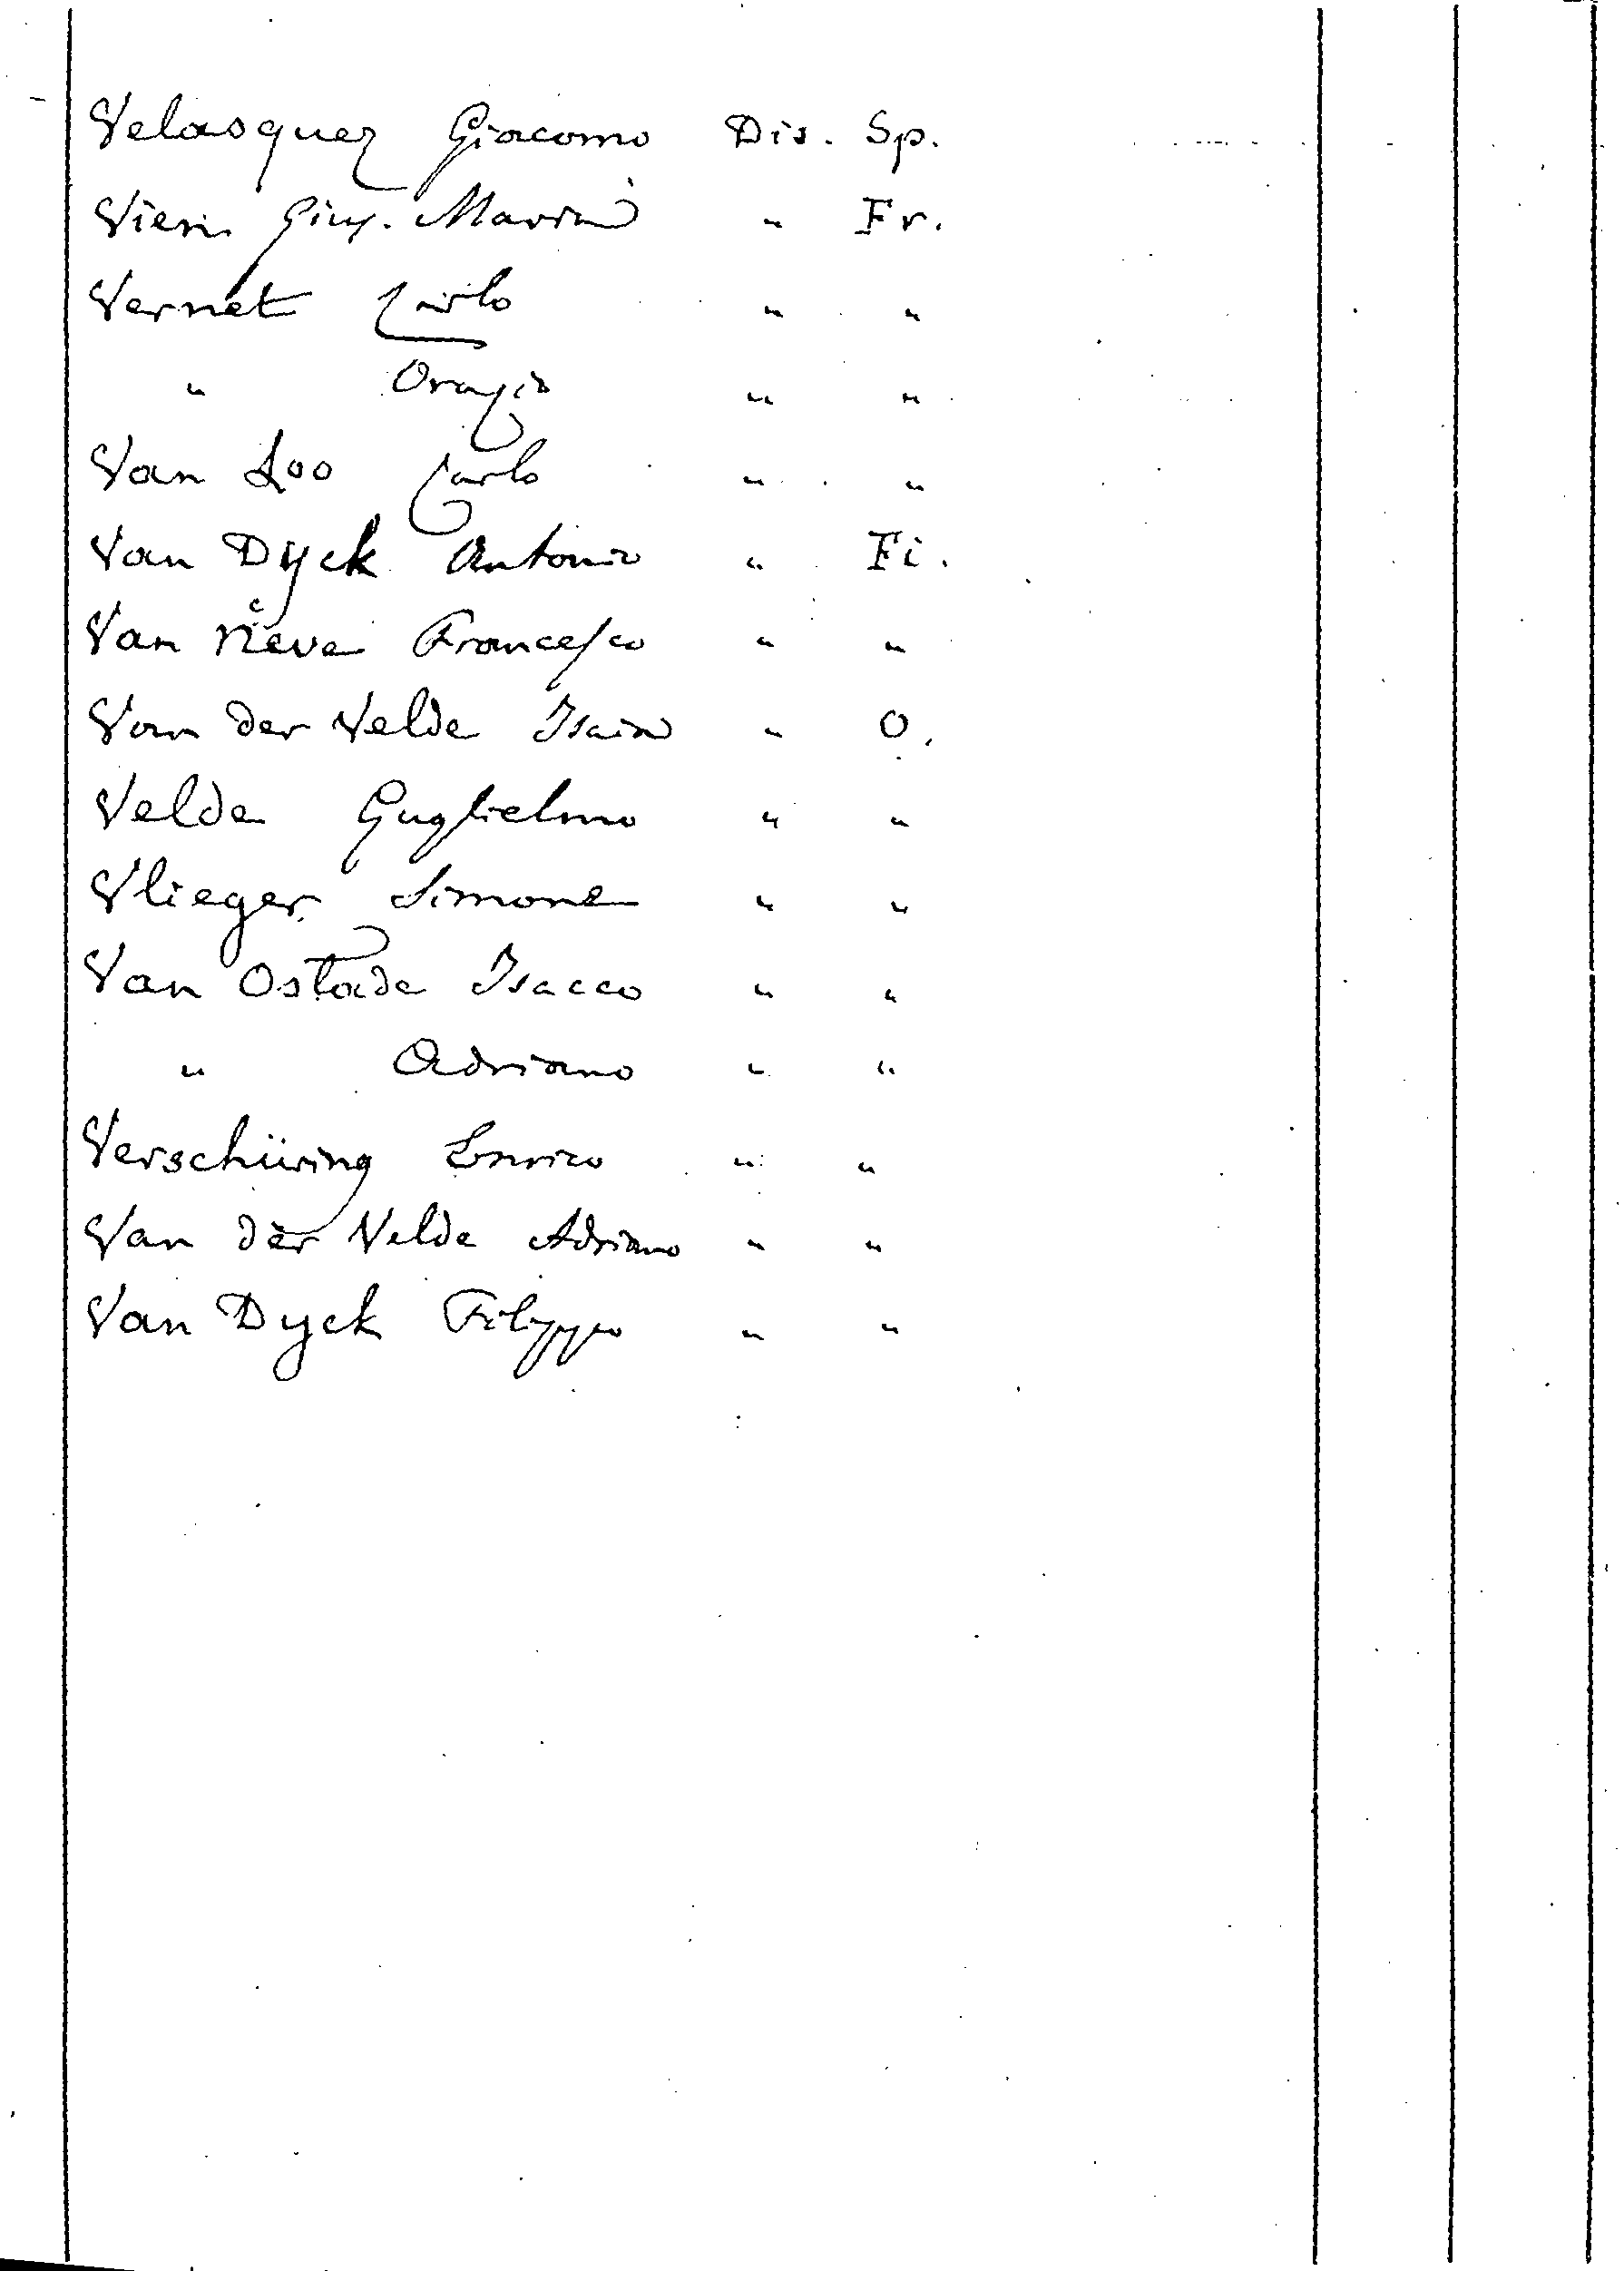 Velasquez Giacomo Dis. Sp.
Vien Gius. Maria " Fr.
Vernet Carlo " "
" Orazio " "
Van Loo Carlo " "
Van Dyck Antonio " Fi.
Van Neve Francesco " "
Van der Velde Isaia " O.
Velde Guglielmo " "
Vlieger Simone " "
Van Ostade Isacco " "
" Adriano " "
Verschüring Enrico " "
Van der Velde Adriano " "
Van Dyck Filippo " "